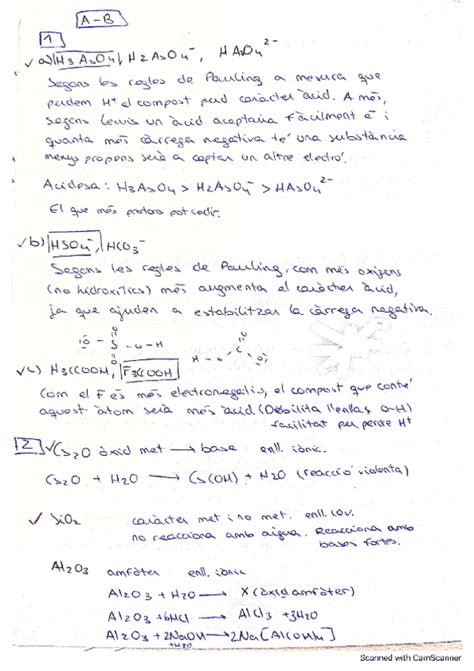 A-B
1
a) H3AsO4, H2AsO4-, HAsO4 2-
Segons les regles de Pauling a mesura que
perdem H+ el compost perd caràcter àcid. A més,
segons Lewis un àcid aceptaria fàcilment e- i
quanta més càrrega negativa té una substància
menys propens serà a captar un altre electró.
Acidesa: H3AsO4 > H2AsO4- > HAsO4 2-
El que més protons pot cedir.
b) HSO4-, HCO3-
Segons les regles de Pauling, com més oxigens
(no hidroxílics) més augmenta el caràcter àcid,
ja que ajuden a estabilitzar la càrrega negativa.
c) H3CCOOH, F3CCOOH
Com el F és més electronegatiu, el compost que conté
aquest àtom serà més àcid (Debilita l'enllaç O-H)
facilitat per perdre H+
2 Cs2O òxid met → base enll. iònic.
Cs2O + H2O → Cs(OH) + H2O (reacció violenta)
SiO2 caràcter met i no met. enll. cov.
no reacciona amb aigua. Reacciona amb
bases fortes.
Al2O3 amfòter enll. iònic
Al2O3 + H2O → X (òxid amfòter)
Al2O3 + 6HCl → AlCl3 + 3H2O
Al2O3 + 2NaOH → 2Na[Al(OH)4]
+H2O
Scanned with CamScanner